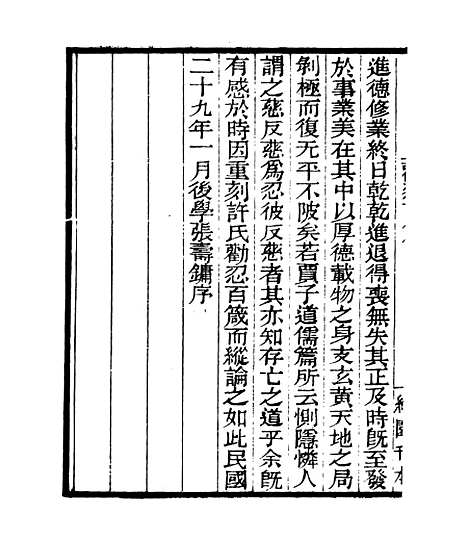 進德修業終日乾乾進退得喪無失其正及時旣至發
於事業美在其中以厚德載物之身支玄黃天地之局
剝極而復无平不陂矣若賈子道儒篇所云惻隱憐人
謂之慈反慈爲忍彼反慈者其亦知存亡之道乎余旣
有感於時因重刻許氏勸忍百箴而縱論之如此民國
二十九年一月後學張壽鏞序